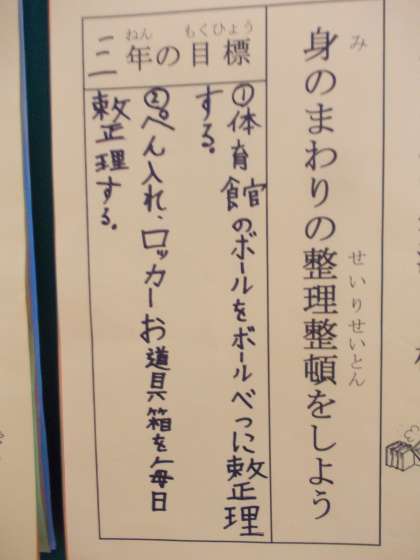 身のまわりの整理整頓をしよう
み
せいりせいとん
三年の目標
ねん
もくひょう
①体育館のボールをボールべつに整理
する。
②ぺん入れ、ロッカーお道具箱を毎日
整理する。